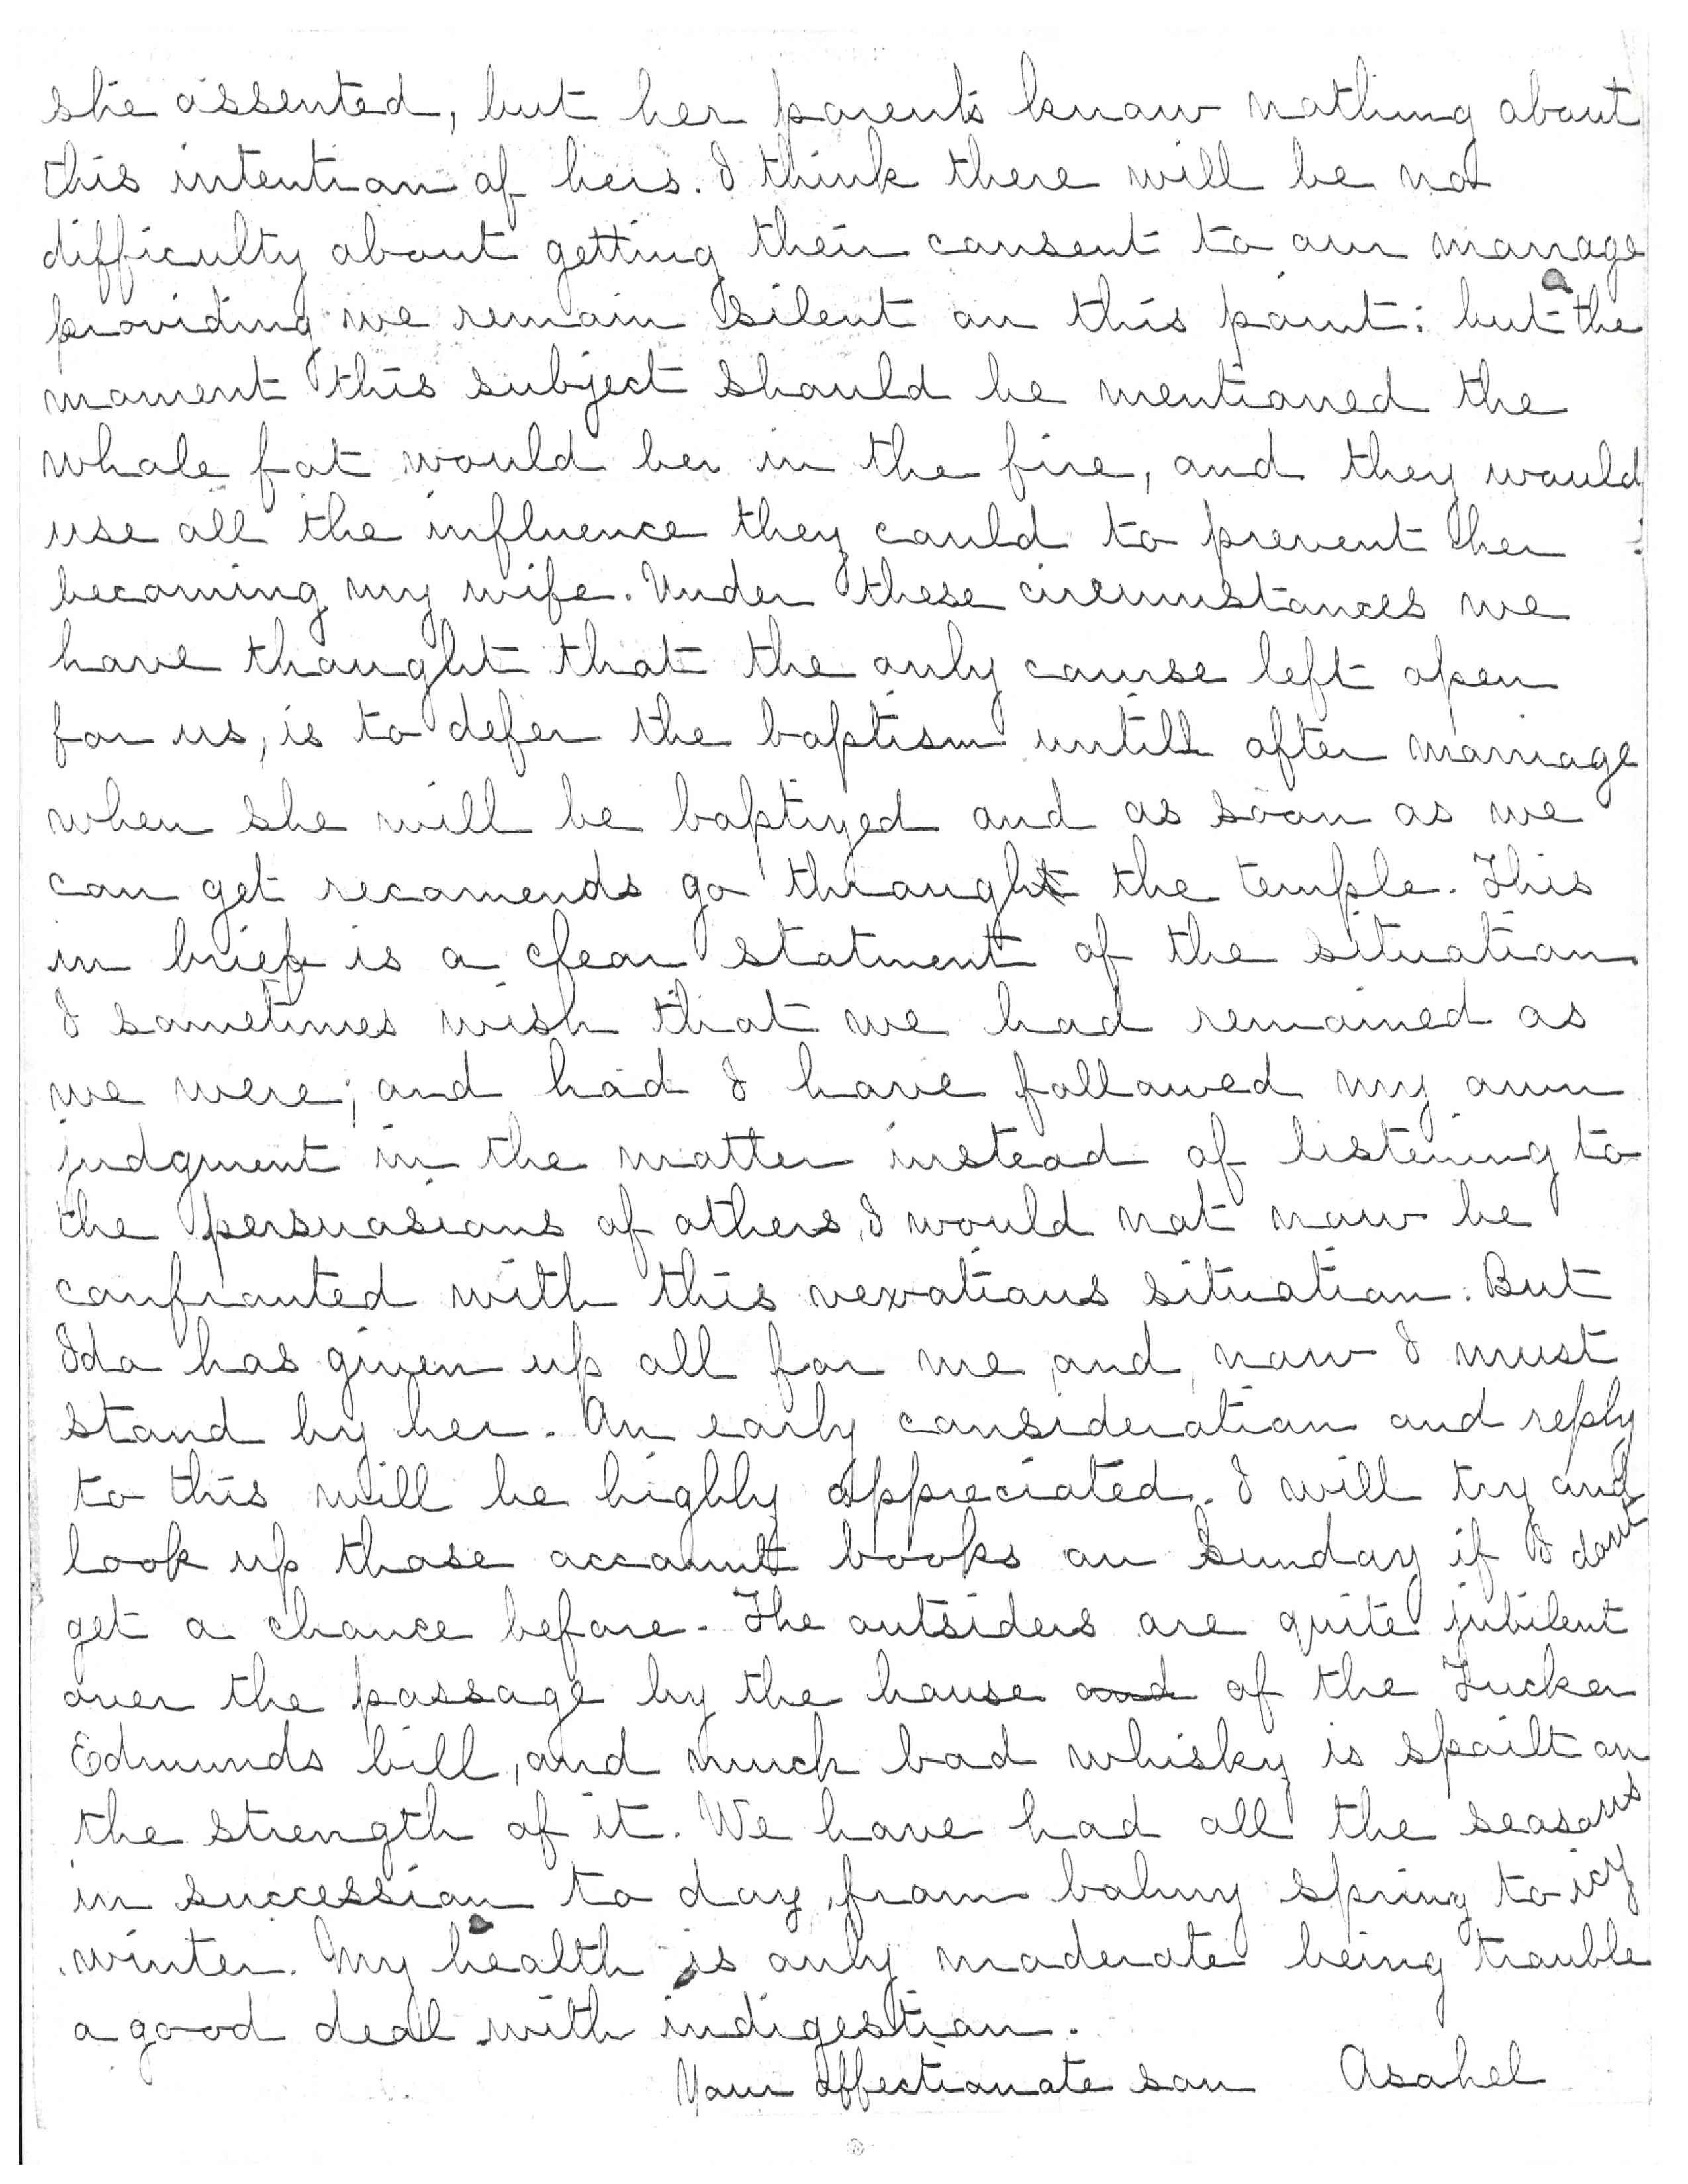 she assented, but her parents know nothing about
this intention of hers. I think there will be no
difficulty about getting their consent to our marrage
providing we remain silent on this point: but the
moment this subject should be mentioned the
whole fat would be in the fire, and they would
use all the influence they could to prevent her
becoming my wife. Under these circumstances we
have thought that the only course left open
for us, is to defer the baptism untill after marriage
when she will be baptized and as soon as we
can get recomends go through the temple. This
in brief is a clear statment of the situation.
I sometimes wish that we had remained as
we were; and had I have followed my own
judgment in the matter instead of listening to
the persuasions of others, I would not now be
confronted with this vexatious situation. But
Ida has given up all for me and, now I must
stand by her. An early consideration and reply
to this will be highly appreciated. I will try and
look up those account books on Sunday if I dont
get a chance before. The outsiders are quite jubilent
over the passage by the house and of the Tucker
Edmunds bill, and much bad whisky is spoilt on
the strength of it. We have had all the seasons
in succession to day, from balmy spring to icy
winter. My health is only moderate being trouble
a good deal with indigestion.
Your affectionate son Asahel